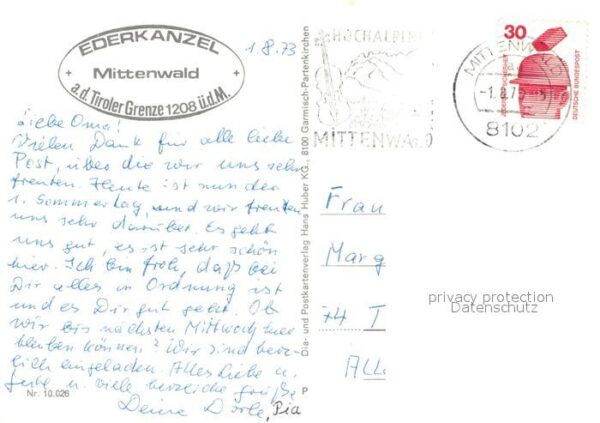 EDERKANZEL
Mittenwald
a.d. Tiroler Grenze 1208 ü.d.M.
1.8.73
HOCHALPEN
MITTENWALD
MITTENWALD
8102
30
DEUTSCHE BUNDESPOST
Liebe Oma!
Vielen Dank für alle liebe
Post, über die wir uns sehr
freuten. Heute ist nun der
1. Sommertag, und wir freuten
uns sehr darüber. Es geht
uns gut, es ist sehr schön
hier. Ich bin froh, daß bei
Dir alles in Ordnung ist
und es Dir gut geht. Ob
wir bis nächsten Mittwoch hier
bleiben können? Wir sind herz-
lich eingeladen. Alles Liebe u.
Gute u. viele herzliche Grüße
Deine Dorle, Pia
Nr. 10.026
P
Dia- und Postkartenverlag Hans Huber KG., 8100 Garmisch-Partenkirchen
Frau
Marg
74 T
All
privacy protection
Datenschutz